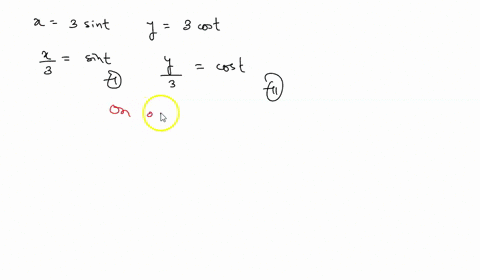 x = 3 sint y = 3 cost
x/3 = sint y/3 = cost
on